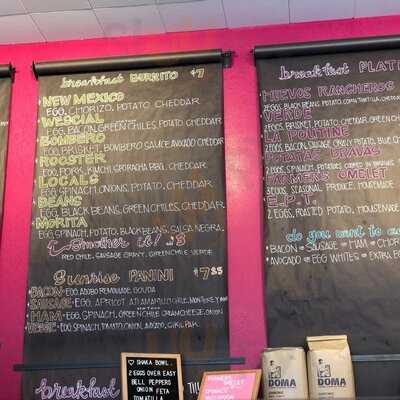 breakfast BURRITO $7
NEW MEXICO
EGG, CHORIZO, POTATO, CHEDDAR
WESCIAL
EGG, BACON, GREEN CHILES, POTATO, CHEDDAR
BOMBERO
EGG, BRISKET, BOMBERO SAUCE, AVOCADO, CHEDDAR
ROOSTER
EGG, PORK, KIMCHI, SRIRACHA BBQ, CHEDDAR
LOCALS
EGG, SPINACH, ONIONS, POTATO, CHEDDAR
BEANS
EGG, BLACK BEANS, GREEN CHILES, CHEDDAR
MORITA
EGG, SPINACH, POTATO, BLACK BEANS, SALSA NEGRA
Smother it! $3
RED CHILE, SAUSAGE GRAVY, GREEN CHILE VERDE
Sunrise PANINI $7
BACON- EGG, ADOBO REMOULADE, GOUDA
SAUSAGE- EGG, APRICOT
HAM- EGG, SPINACH, GREEN CHILE CREAM CHEESE, ONION
VEGGIE- EGG, SPINACH, TOMATO, ONION, AVOCADO
breakfast
breakfast PLAT
HUEVOS RANCHEROS
2 EGGS, BLACK BEANS, POTATO, CORN TORTILLA, CHEDDAR
VERDE
2 EGGS, BRISKET, POTATO, CHEDDAR, GREEN
LA POUTINE
2 EGGS, BACON, SAUSAGE GRAVY, POTATO, BLUE
PATATAS BRAVAS
2 EGGS, SPINACH, POTATOES
FARMERS OMELET
3 EGGS, SEASONAL PRODUCE, HOUSEMADE
E.P.T.
2 EGGS, ROASTED POTATO, HOUSEMADE
do you want to
BACON SAUSAGE HAM
AVOCADO EGG WHITES EXTRA EGG
SHAKA BOWL
2 EGGS OVER EASY
BELL PEPPERS
ONION FETA
TOMATILLO
OMELET
SPINACH
MUSHROOM
DOMA
DOMA